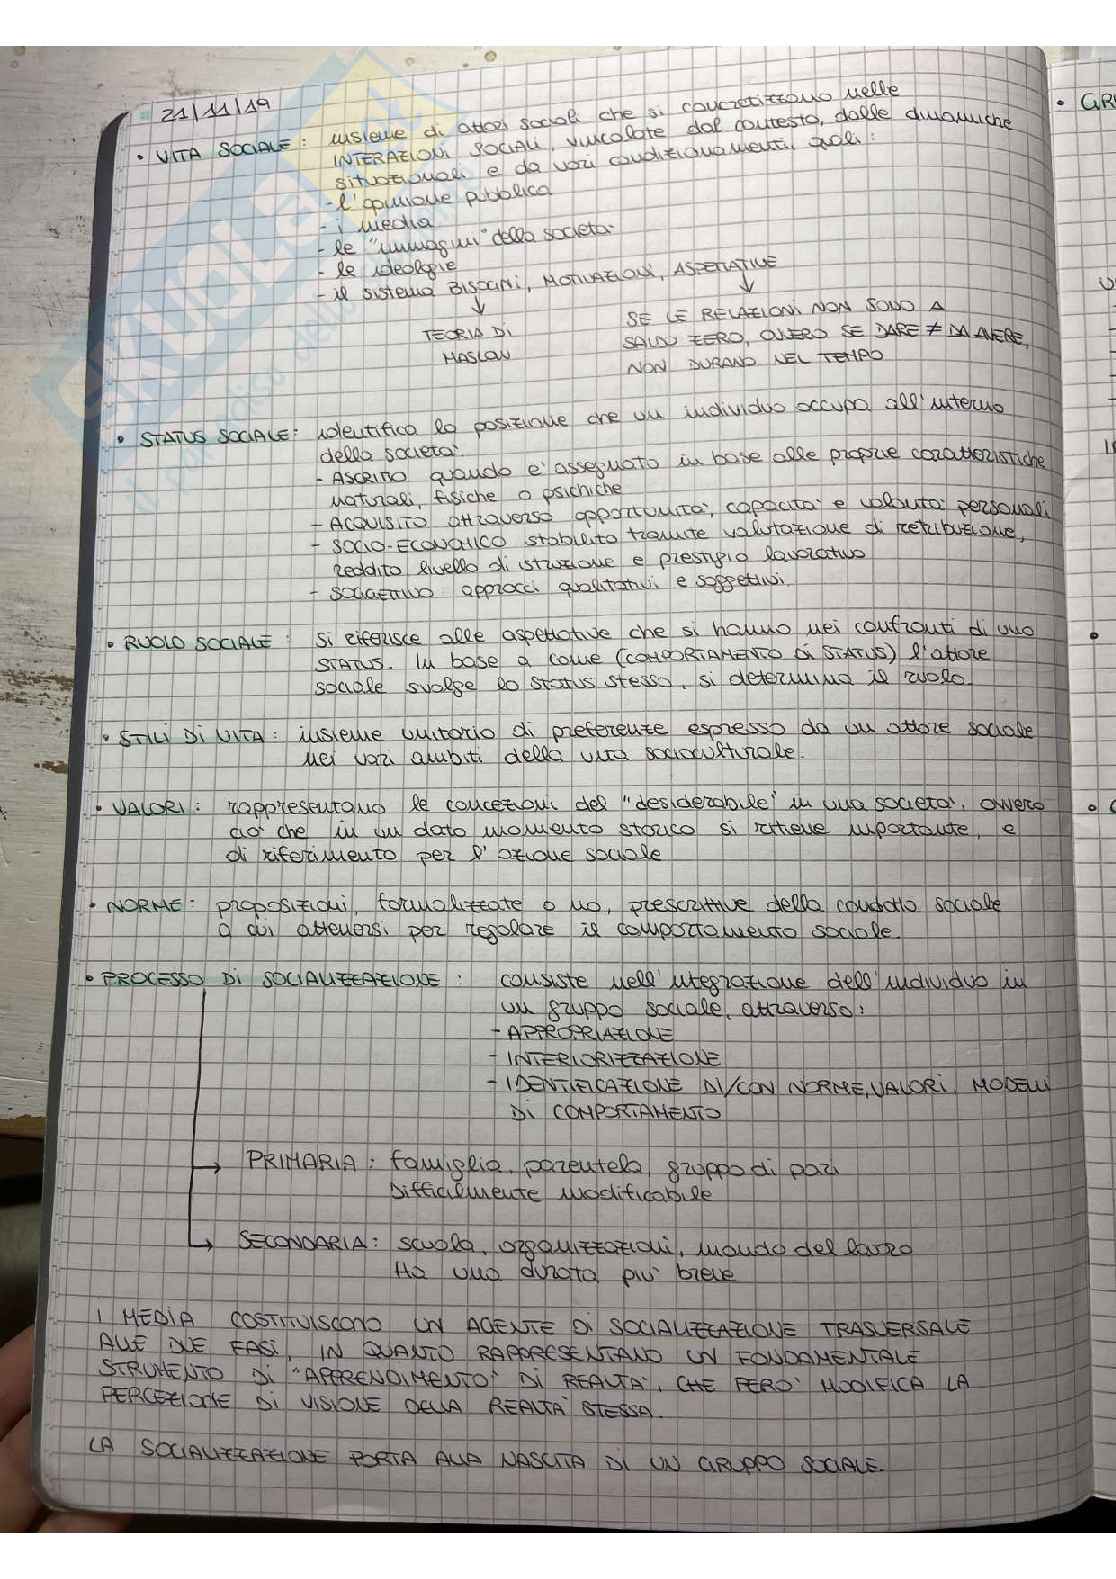 21/11/19
• VITA SOCIALE: insieme di attori sociali che si concretizzano nelle
INTERAZIONI SOCIALI, vincolate dal contesto, dalle dinamiche
situazionali e da vari condizionamenti, quali:
- l'opinione pubblica
- i media
- le "immagini" della società
- le ideologie
- il sistema BISOGNI, MOTIVAZIONI, ASPETTATIVE
↓ ↓
TEORIA DI
MASLOW
SE LE RELAZIONI NON SONO A
SALDO ZERO, OVVERO SE DARE ≠ DA AVERE,
NON DURANO NEL TEMPO
• STATUS SOCIALE: identifica la posizione che un individuo occupa all'interno
della società.
- ASCRITTO quando è assegnato in base alle proprie caratteristiche
naturali, fisiche o psichiche
- ACQUISITO attraverso opportunità, capacità e volontà personali
- SOCIO-ECONOMICO stabilito tramite valutazione di retribuzione,
reddito livello di istruzione e prestigio lavorativo
- SOGGETTIVO approcci qualitativi e soggettivi.
• RUOLO SOCIALE: si riferisce alle aspettative che si hanno nei confronti di uno
STATUS. In base a come (COMPORTAMENTO DI STATUS) l'attore
sociale svolge lo STATUS stesso, si determina il ruolo.
• STILI DI VITA: insieme unitario di preferenze espresso da un attore sociale
nei vari ambiti della vita socioculturale.
• VALORI: rappresentano le concezioni del "desiderabile" in una società, ovvero
ciò che in un dato momento storico si ritiene importante, e
di riferimento per l'azione sociale
• NORME: proposizioni, formalizzate o no, prescrittive della condotta sociale
a cui attenersi per regolare il comportamento sociale.
• PROCESSO DI SOCIALIZZAZIONE: consiste nell'integrazione dell'individuo in
un gruppo sociale, attraverso:
- APPROPRIAZIONE
- INTERIORIZZAZIONE
- IDENTIFICAZIONE DI/CON NORME, VALORI, MODELLI
DI COMPORTAMENTO
→ PRIMARIA: famiglia, parentela, gruppo di pari
Difficilmente modificabile
→ SECONDARIA: scuola, organizzazioni, mondo del lavoro
Ha una durata più breve
I MEDIA COSTITUISCONO UN AGENTE DI SOCIALIZZAZIONE TRASVERSALE
ALLE DUE FASI, IN QUANTO RAPPRESENTANO UN FONDAMENTALE
STRUMENTO DI "APPRENDIMENTO" DI REALTÀ, CHE PERÒ MODIFICA LA
PERCEZIONE DI VISIONE DELLA REALTÀ STESSA.
LA SOCIALIZZAZIONE PORTA ALLA NASCITA DI UN GRUPPO SOCIALE.